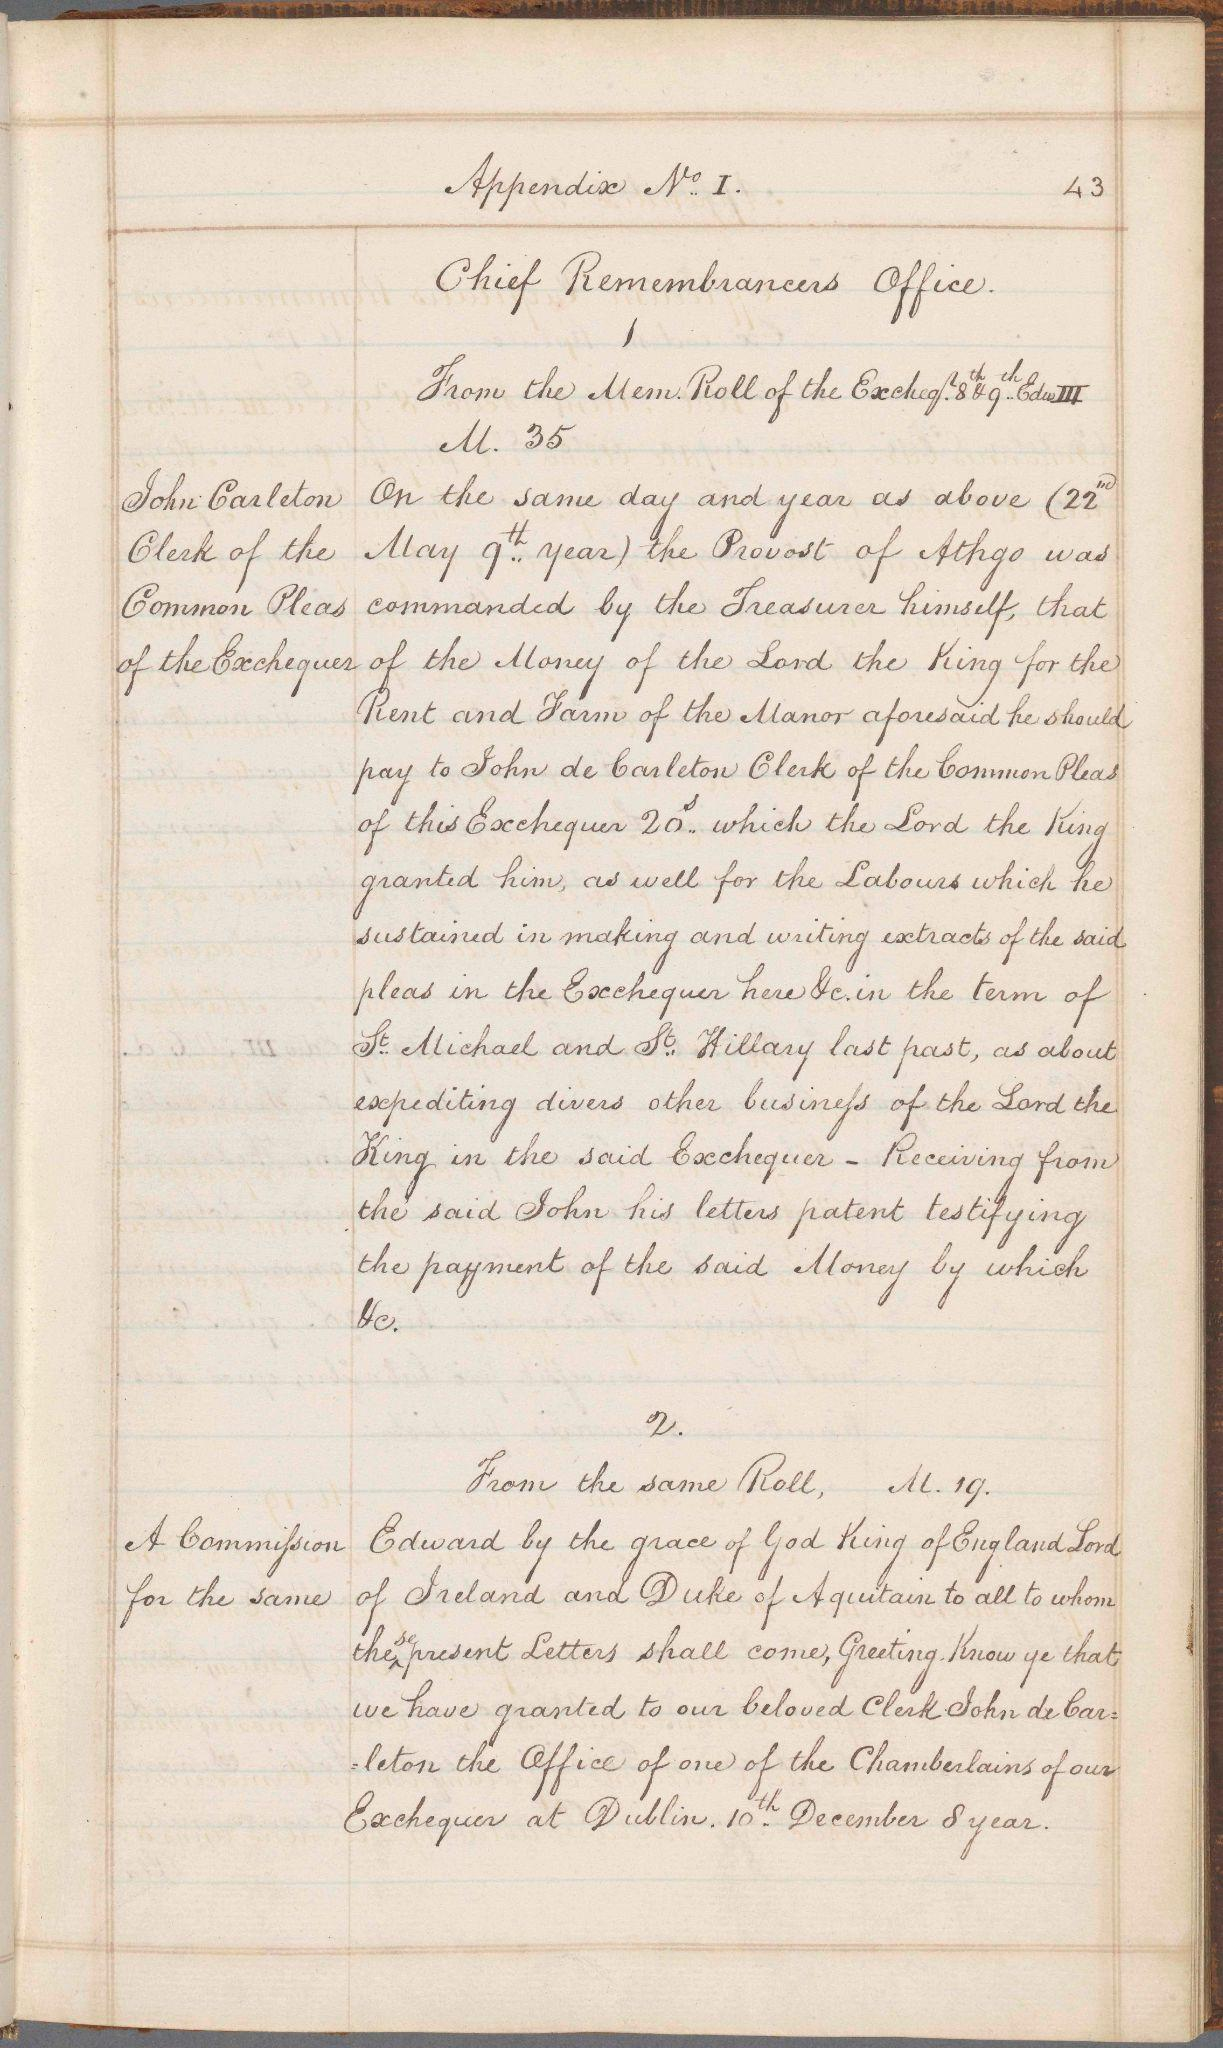 Appendix No. I. 43
Chief Remembrancers Office.
1
From the Mem. Roll of the Excheqr. 8th & 9th.. Edw III
M. 35
John Carleton On the same day and year as above (22nd
Clerk of the May 9th.. year) the Provost of Athgo was
Common Pleas commanded by the Treasurer himself, that
of the Exchequer of the Money of the Lord the King for the
Rent and Farm of the Manor aforesaid he should
pay to John de Carleton Clerk of the Common Pleas
of this Exchequer 20s.. which the Lord the King
granted him, as well for the Labours which he
sustained in making and writing extracts of the said
pleas in the Exchequer here &c. in the term of
St.. Michael and St.. Hillary last past, as about
expediting divers other busineſs of the Lord the
King in the said Exchequer - Receiving from
the said John his letters patent testifying
the payment of the said Money by which
&c.
2.
From the same Roll, M. 19.
A Commiſsion Edward by the grace of God King of England Lord
for the same of Ireland and Duke of Aquitain to all to whom
these present Letters shall come, Greeting. Know ye that
we have granted to our beloved Clerk John de Car=
=leton the Office of one of the Chamberlains of our
Exchequer at Dublin. 10th. December 8 year.